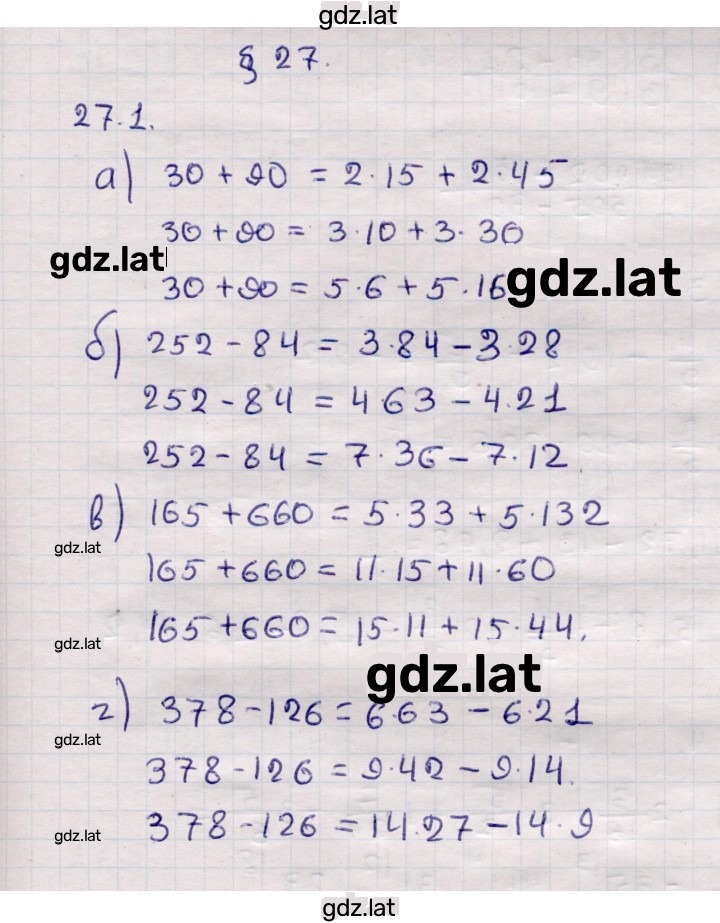 gdz.lat
§ 27.
27.1.
а) 30 + 90 = 2·15 + 2·45
30 + 90 = 3·10 + 3·30
gdz.lat
30 + 90 = 5·6 + 5·16
gdz.lat
б) 252 - 84 = 3·84 - 3·28
252 - 84 = 4·63 - 4·21
252 - 84 = 7·36 - 7·12
в) 165 + 660 = 5·33 + 5·132
gdz.lat
165 + 660 = 11·15 + 11·60
165 + 660 = 15·11 + 15·44.
gdz.lat
gdz.lat
г) 378 - 126 = 6·63 - 6·21
gdz.lat
378 - 126 = 9·42 - 9·14.
378 - 126 = 14·27 - 14·9
gdz.lat
gdz.lat